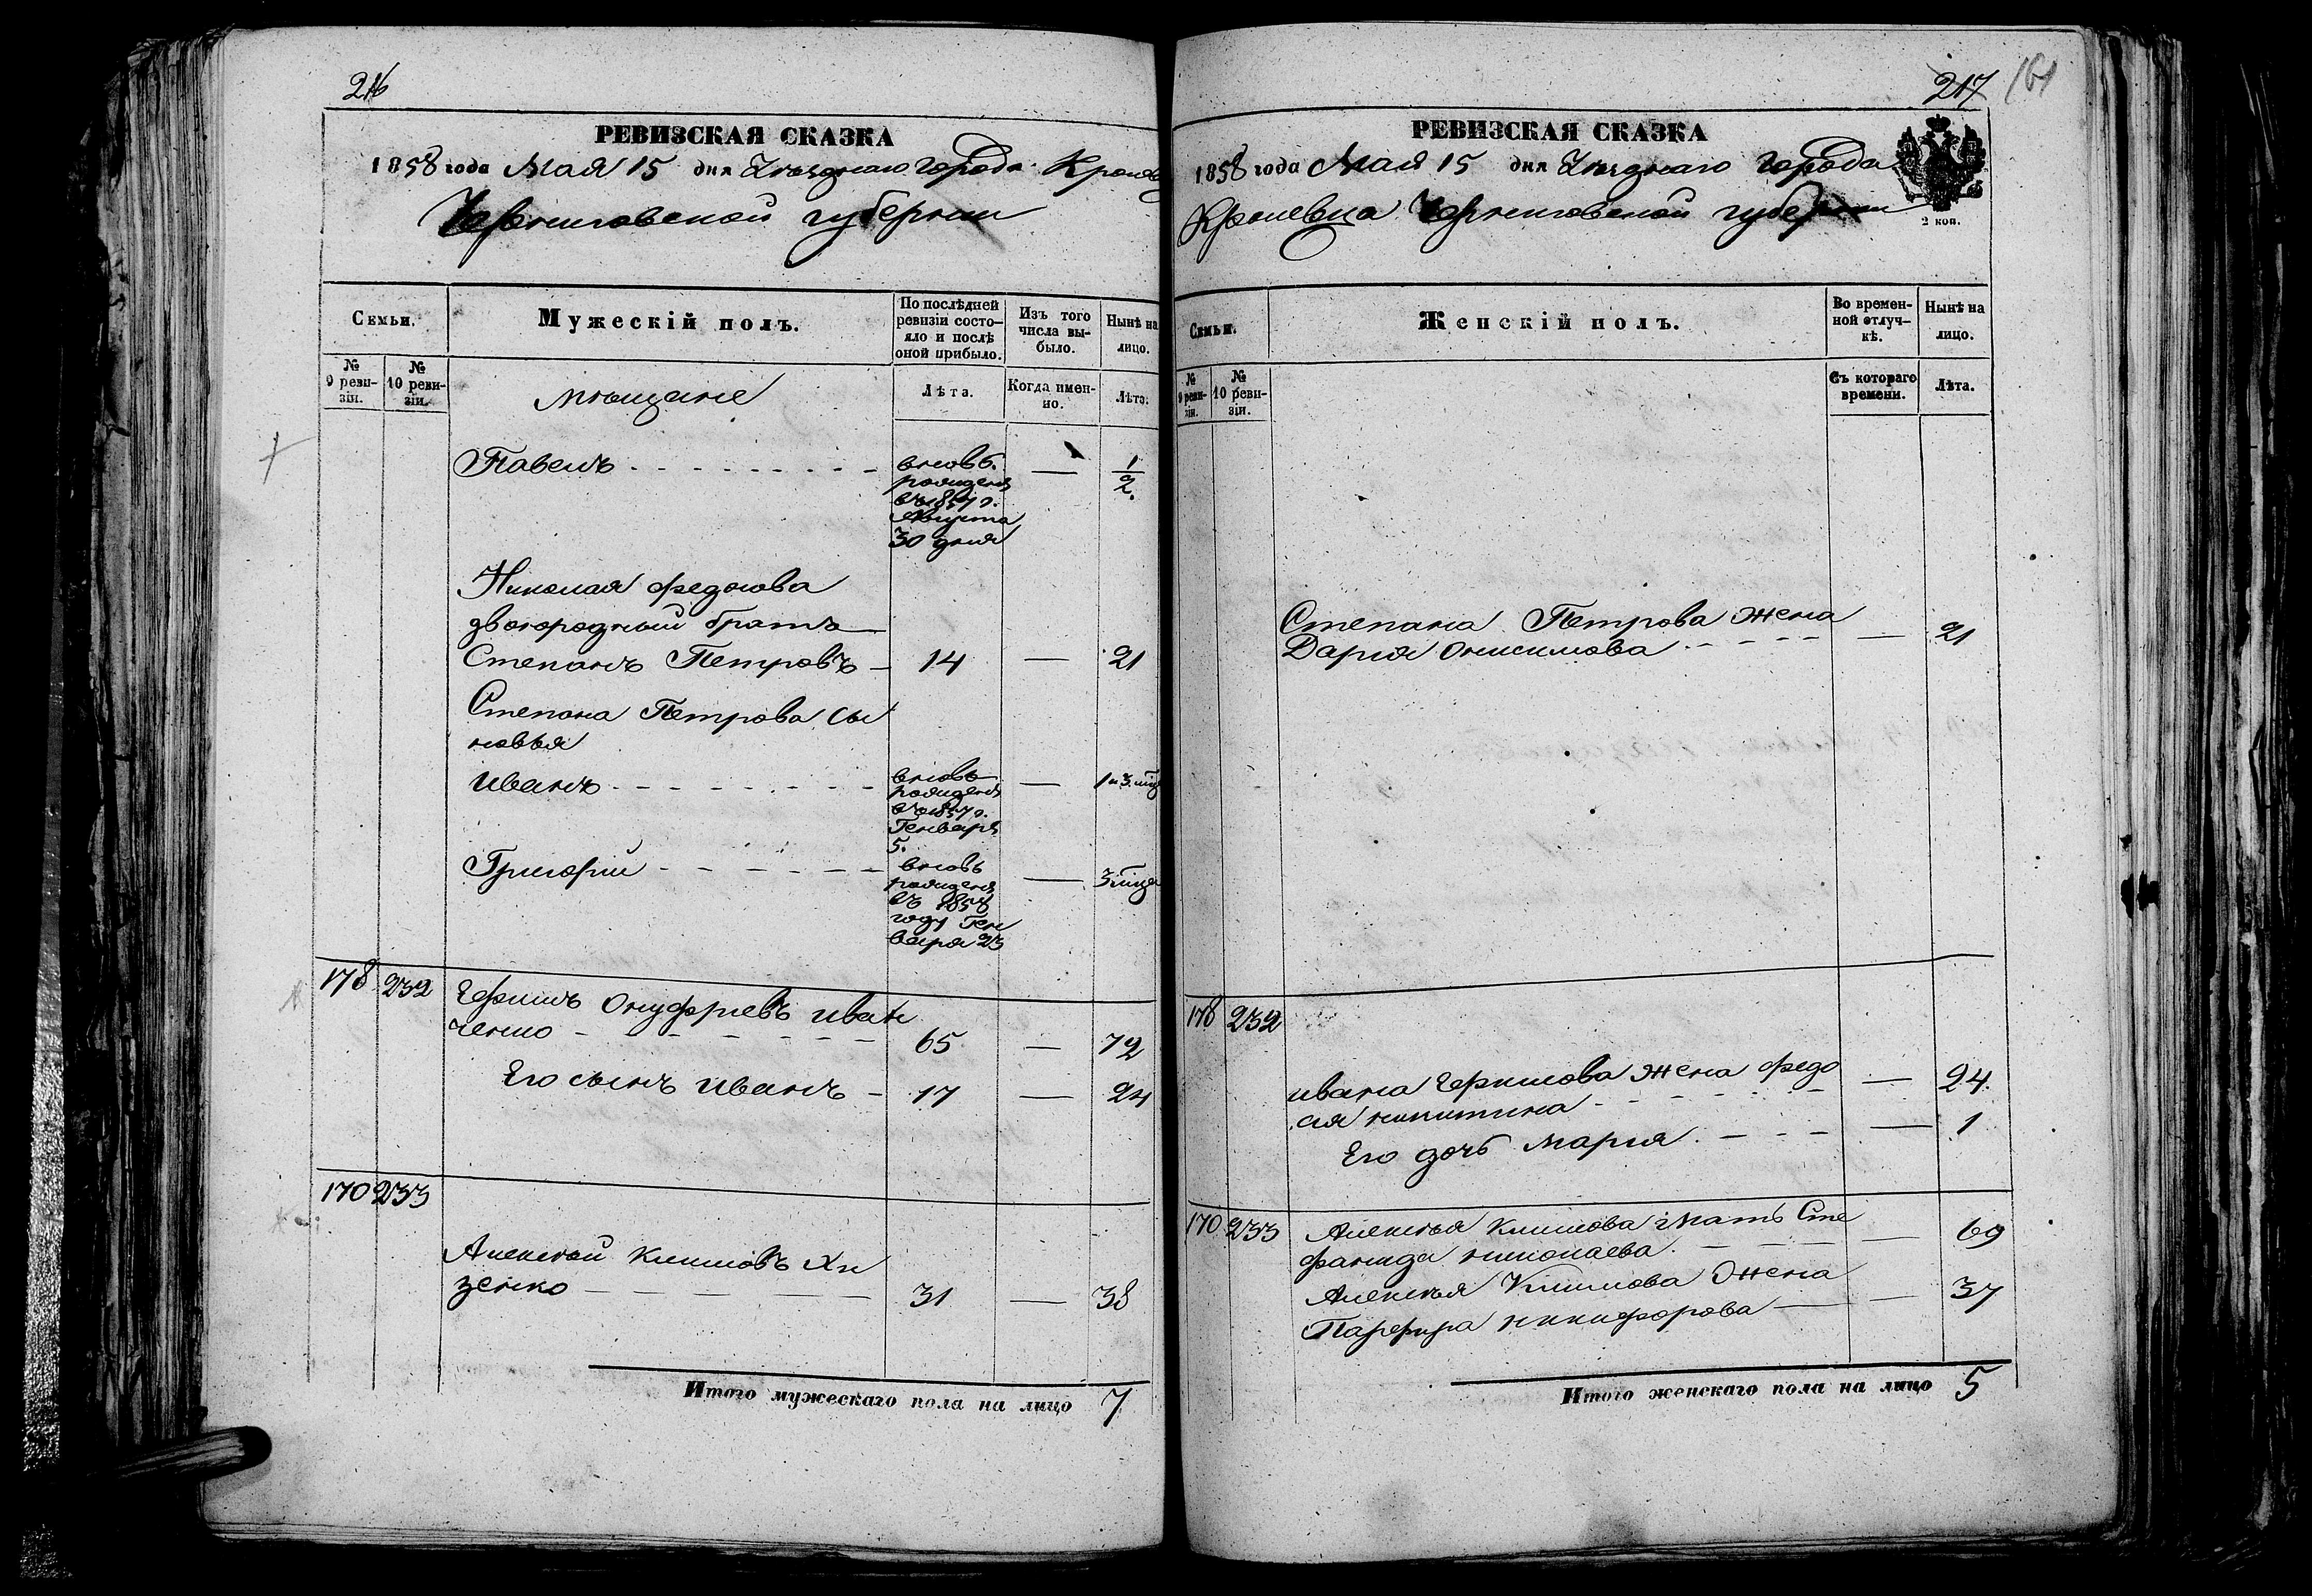 216
РЕВИЗСКАЯ СКАЗКА
1858 года Мая 15 дня Уѣзднаго города Кролев
Черниговской губернии
Семьи.
Мужескій полъ.
По послѣдней ревизіи состо-
яло и послѣ
оной прибыло.
Изъ того
числа вы-
было.
Нынѣ на
лицо.
№
9 реви-
зіи.
№
10 реви-
зіи.
мѣщане
Лѣта.
Когда имен-
но.
Лѣта.
Павелъ
вновь
рожденъ
въ 1857 г.
Августа
30 дня
—
1/2
Николая Федорова
двоюродный братъ
Степанъ Петровъ — 14 — 21
Степана Петрова сы
новья
Иванъ
вновь
рожденъ
въ 1857 г.
Генваря
5.
—
1 и 3 мѣц
Григорий
вновь
рожденъ
въ 1858
году Ген
варя 23
—
3 мѣца
178 232
Онуфриевъ Иван
ченко 65 — 72
Его сынъ Иванъ 17 — 24
170 233
Алексѣй Климовъ Хи
зенко 31 — 38
Итого мужескаго пола на лицо 7
217
161
РЕВИЗСКАЯ СКАЗКА
1858 года Мая 15 дня Уѣзднаго города
Кролевца Черниговской губернии
2 коп.
Семьи.
Женскій полъ.
Во времен-
ной отлуч-
кѣ.
Нынѣ на
лицо.
№
9 реви-
зіи.
№
10 реви-
зіи.
Съ котораго
времени.
Лѣта.
Степана Петрова жена
Дария Онисимова — 21
178 232
Ивана жена Федо
сия Никитина — 24
Его дочь Мария — 1
170 233
Алексѣя Климова мать Сте
фанида Николаева — 69
Алексѣя Климова жена
Парфира Никифорова — 37
Итого женскаго пола на лицо 5